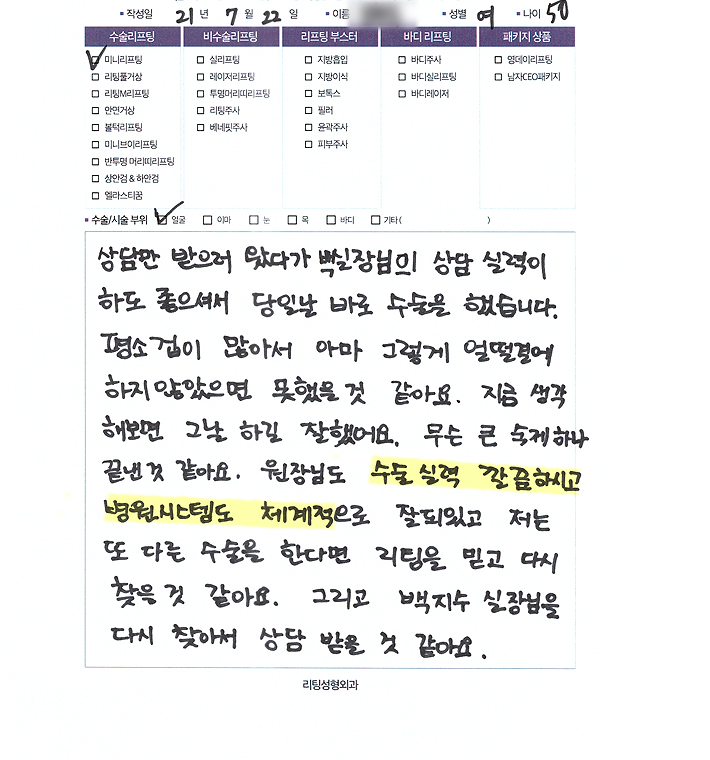 작성일 21 년 7 월 22 일 이름 성별 여 나이 50
수술리프팅 비수술리프팅 리프팅 부스터 바디 리프팅 패키지 상품
미니리프팅 실리프팅 지방흡입 바디주사 영데이리프팅
리팅풀거상 레이저리프팅 지방이식 바디실리프팅 남자CEO패키지
리팅M리프팅 투명머리띠리프팅 보톡스 바디레이저
안면거상 리팅주사 필러
볼턱리프팅 베네핏주사 윤곽주사
미니브이리프팅 피부주사
반투명 머리띠리프팅
상안검 & 하안검
엘라스티꿈
수술/시술 부위 얼굴 이마 눈 목 바디 기타( )
상담만 받으러 왔다가 백실장님의 상담 실력이
하도 좋으셔서 당일날 바로 수술을 했습니다.
평소 겁이 많아서 아마 그렇게 얼떨결에
하지 않았으면 못했을 것 같아요. 지금 생각
해보면 그날 하길 잘했어요. 무슨 큰 숙제 하나
끝낸 것 같아요. 원장님도 수술 실력 깔끔하시고
병원시스템도 체계적으로 잘되있고 저는
또 다른 수술을 한다면 리팅을 믿고 다시
찾을 것 같아요. 그리고 백지수 실장님을
다시 찾아서 상담 받을 것 같아요.
리팅성형외과